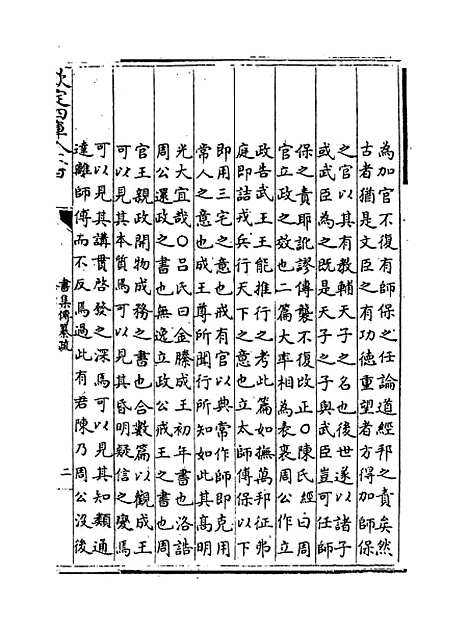 為加官不復有師保之任論道經邦之責矣然
古者猶是文臣之有功德重望者方得加師保
之官以其有教輔天子之名也後世遂以諸子
或武臣為之既是天子之子與武臣豈可任師
保之責耶訛謬傳襲不復改正○陳氏經曰周
官立政之效也二篇大率相為表裏周公作立
政告武王王能推行之考此篇如撫萬邦征弗
庭即詰戎兵行天下之意也立太師傅保以下
即用三宅之意也戒有官以典常作師即克用
常人之意也成王尊所聞行所知如此其高明
光大宜哉○呂氏曰金縢成王初年書也洛誥
周公還政之書也無逸立政公戒王之書也周
官王親政開物成務之書也合數篇以觀成王
可以見其本質焉可以見其昏明疑信之變焉
可以見其講貫啓發之深焉可以見其知類通
達離師傅而不反焉過此有君陳乃周公沒後
欽定四庫全書
書集傳纂疏
二